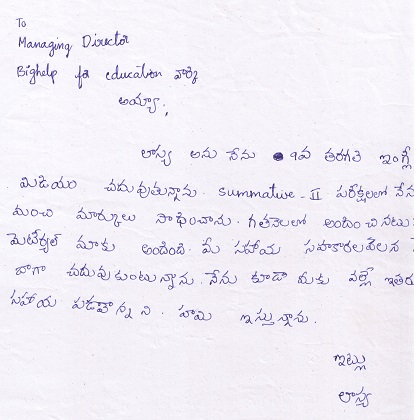 To
Managing Director
Bighelp for education వార్కి
అయ్యా,
లాస్య అను నేను 9వ తరగతి ఇంగ్లీ
మిడియం చదువుతున్నాను. summative-II పరీక్షలలో నేను
మంచి మార్కులు సాధించాను. గతనెలలో అందించినటు
మెటీర్యల్ మాకు అందింది. మీ సహాయ సహకారాలవలన నే
బాగా చదువుకుంటున్నాను. నేను కూడా మీకు వల్లే ఇతరు
సహాయ పడతాన్నని. హామి ఇస్తున్నాను.
ఇట్లు
లాస్య